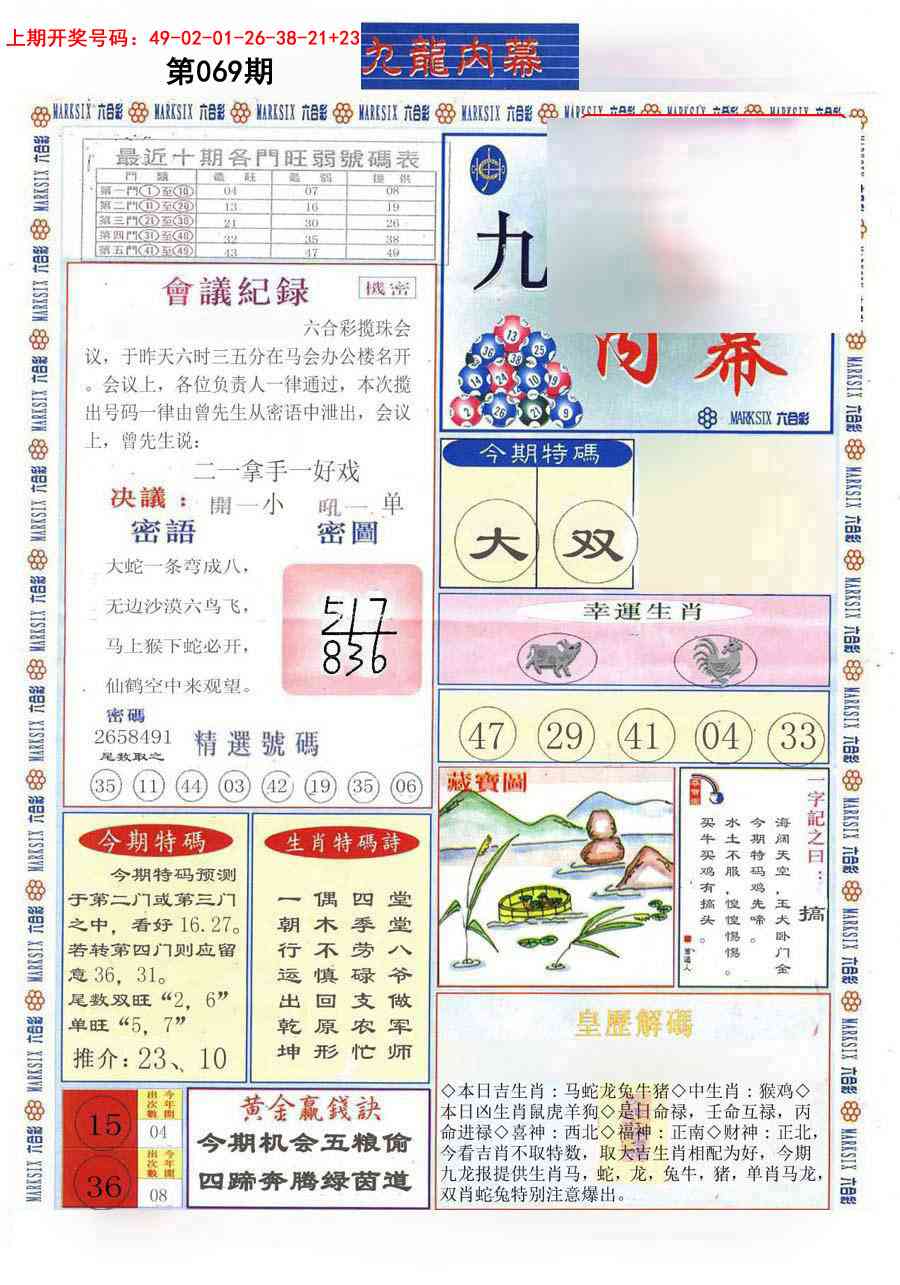 上期开奖号码：49-02-01-26-38-21+23
第069期
九龍内幕
MARKSIX 六合彩 MARKSIX 六合彩 MARKSIX 六合彩 MARKSIX 六合彩 MARKSIX 六合彩
最近十期各門旺弱號碼表
門 類 最 旺 最 弱 提 供
第一門①至⑩ 04 07 08
第二門⑪至⑳ 13 16 19
第三門㉑至㉚ 21 30 26
第四門㉛至㊵ 32 35 38
第五門㊶至㊾ 43 47 49
九
内幕
13
36 38 25
14 24 10 19
2 26 21 9
MARKSIX 六合彩
會議紀録
機密
六合彩揽珠会
议，于昨天六时三五分在马会办公楼名开
。会议上，各位负责人一律通过，本次揽
出号码一律由曾先生从密语中泄出，会议
上，曾先生说：
二一拿手一好戏
决議： 開一小 吼一单
密語 密圖
大蛇一条弯成八，
无边沙漠六鸟飞，
马上猴下蛇必开，
仙鹤空中来观望。
517
836
密碼
2658491
尾数取之
精選號碼
35 11 44 03 42 19 35 06
今期特碼
大 双
幸運生肖
47 29 41 04 33
藏寶圖
一字記之曰：
搞
海阔天空，玉犬卧门金
今期特码鸡先啼。
水土不服，惶惶惕惕。
买牛买鸡有搞头。
今期特碼
今期特码预测
于第二门或第三门
之中，看好16.27。
若转第四门则应留
意36，31。
尾数双旺“2，6”
单旺“5，7”
推介：23、10
生肖特碼詩
一偶四堂
朝木季堂
行不劳八
运慎碌爷
出回支做
乾原农军
坤形忙师
15
今年開
出次數
04
36
今年開
出次數
08
黄金赢錢訣
今期机会五粮偷
四蹄奔腾绿茵道
皇歷解碼
◇本日吉生肖：马蛇龙兔牛猪◇中生肖：猴鸡◇
本日凶生肖鼠虎羊狗◇是日命禄，壬命互禄，丙
命进禄◇喜神：西北◇福神：正南◇财神：正北，
今看吉肖不取特数，取大吉生肖相配为好，今期
九龙报提供生肖马，蛇，龙，兔牛，猪，单肖马龙，
双肖蛇兔特别注意爆出。